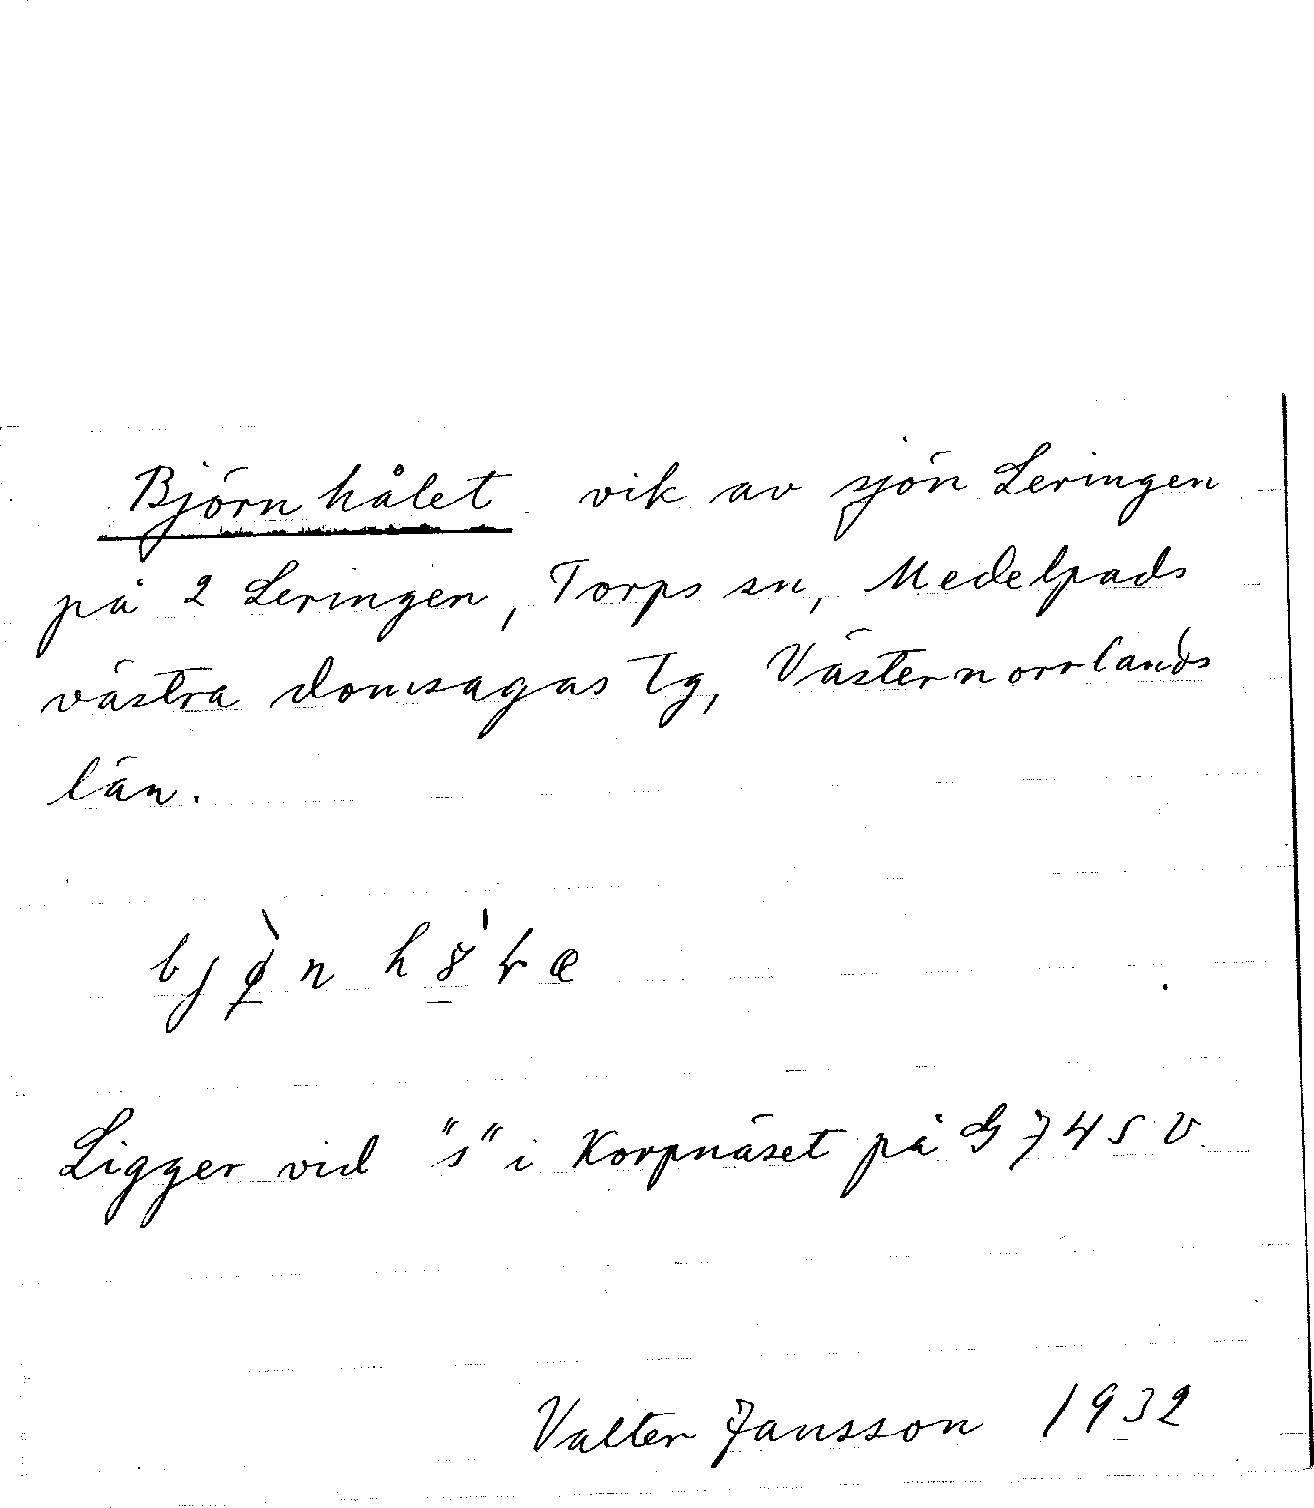 Björnhålet vik av sjön Leringen
på 2 Leringen, Torps sn, Medelpads
västra domsagas tg, Västernorrlands
län.
Ligger vid "s" i Korpnäset på G 745 V.
Valter Jansson 1932